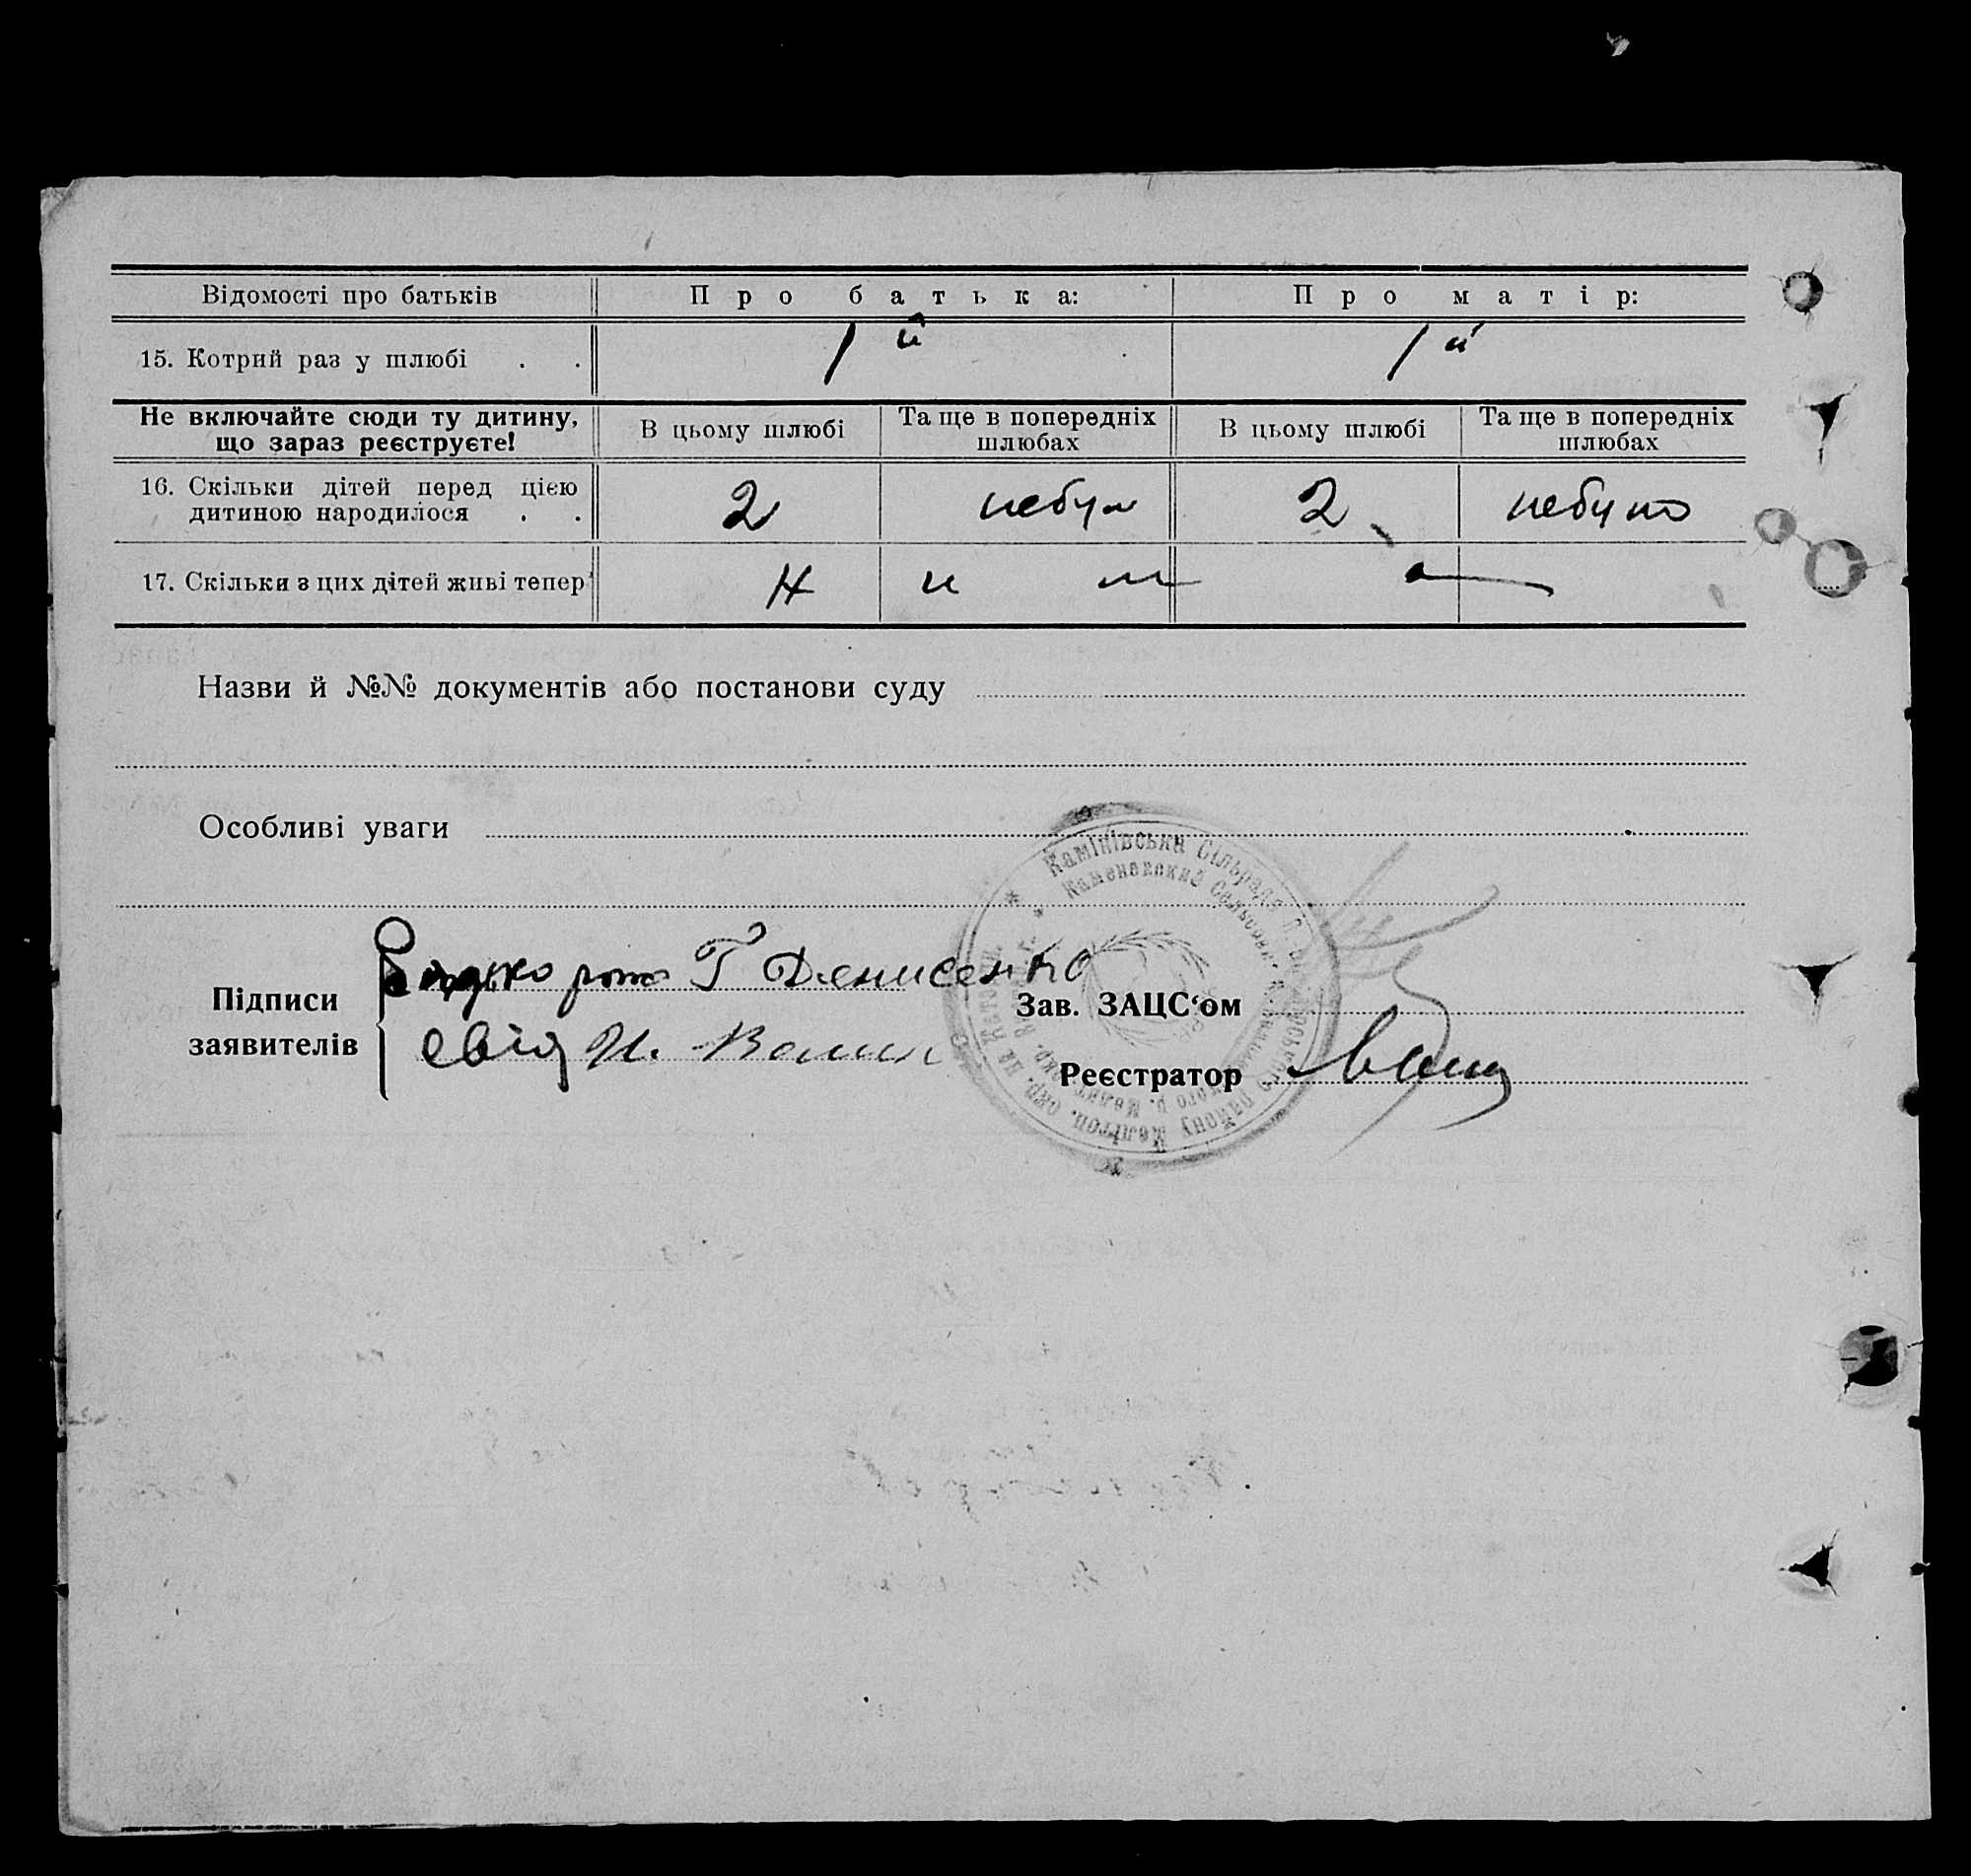 Відомості про батьків
Про батька:
Про матір:
15. Котрий раз у шлюбі . .
1й
1й
Не включайте сюди ту дитину,
що зараз реєструєте!
В цьому шлюбі
Та ще в попередніх
шлюбах
В цьому шлюбі
Та ще в попередніх
шлюбах
16. Скільки дітей перед цією
дитиною народилося . .
2
небул
2
небуло
17. Скільки з цих дітей живі тепер
Назви й №№ документів або постанови суду
Особливі уваги
Камінівська Сільрада
Каменавский Сельсовет
району Мелітоп. окр. на Катерин.
Підписи
заявителів
Г Денисенко
свід И.
Зав. ЗАЦС‘ом
Реєстратор